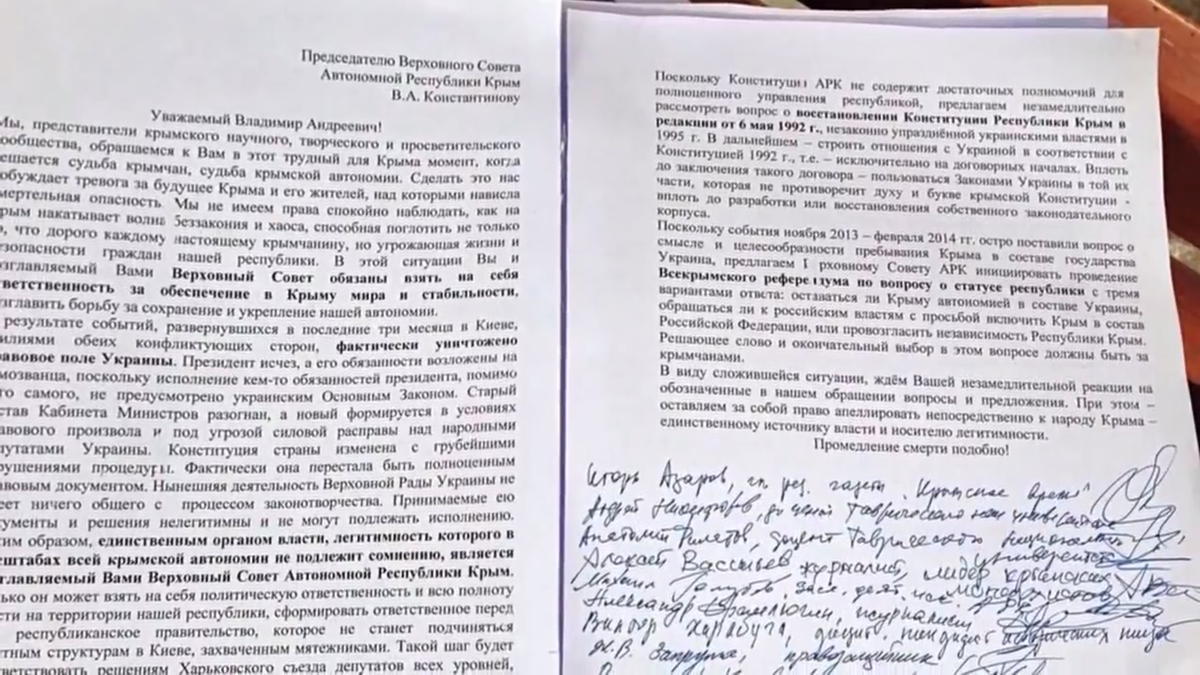 Председателю Верховного Совета
Автономной Республики Крым
В.А. Константинову
Уважаемый Владимир Андреевич!
Мы, представители крымского научного, творческого и просветительского
ообщества, обращаемся к Вам в этот трудный для Крыма момент, когда
ешается судьба крымчан, судьба крымской автономии. Сделать это нас
обуждает тревога за будущее Крыма и его жителей, над которыми нависла
мертельная опасность. Мы не имеем права спокойно наблюдать, как на
рым накатывает волна беззакония и хаоса, способная поглотить не только
о, что дорого каждому настоящему крымчанину, но угрожающая жизни и
зопасности граждан нашей республики. В этой ситуации Вы и
зглавляемый Вами Верховный Совет обязаны взять на себя
тветственность за обеспечение в Крыму мира и стабильности,
зглавить борьбу за сохранение и укрепление нашей автономии.
результате событий, развернувшихся в последние три месяца в Киеве,
илиями обеих конфликтующих сторон, фактически уничтожено
равовое поле Украины. Президент исчез, а его обязанности возложены на
мозванца, поскольку исполнение кем-то обязанностей президента, помимо
го самого, не предусмотрено украинским Основным Законом. Старый
став Кабинета Министров разогнан, а новый формируется в условиях
авового произвола и под угрозой силовой расправы над народными
путатами Украины. Конституция страны изменена с грубейшими
рушениями процедуры. Фактически она перестала быть полноценным
авовым документом. Нынешняя деятельность Верховной Рады Украины не
еет ничего общего с процессом законотворчества. Принимаемые ею
кументы и решения нелегитимны и не могут подлежать исполнению.
ким образом, единственным органом власти, легитимность которого в
сштабах всей крымской автономии не подлежит сомнению, является
зглавляемый Вами Верховный Совет Автономной Республики Крым.
лько он может взять на себя политическую ответственность и всю полноту
сти на территории нашей республики, сформировать ответственное перед
республиканское правительство, которое не станет подчиняться
тным структурам в Киеве, захваченным мятежниками. Такой шаг будет
тветствовать решениям Харьковского съезда депутатов всех уровней,
Поскольку Конституция АРК не содержит достаточных полномочий для
полноценного управления республикой, предлагаем незамедлительно
рассмотреть вопрос о восстановлении Конституции Республики Крым в
редакции от 6 мая 1992 г., незаконно упразднённой украинскими властями в
1995 г. В дальнейшем – строить отношения с Украиной в соответствии с
Конституцией 1992 г., т.е. – исключительно на договорных началах. Вплоть
до заключения такого договора – пользоваться Законами Украины в той их
части, которая не противоречит духу и букве крымской Конституции -
вплоть до разработки или восстановления собственного законодательного
корпуса.
Поскольку события ноября 2013 – февраля 2014 гг. остро поставили вопрос о
смысле и целесообразности пребывания Крыма в составе государства
Украина, предлагаем рховному Совету АРК инициировать проведение
Всекрымского референдума по вопросу о статусе республики с тремя
вариантами ответа: оставаться ли Крыму автономией в составе Украины,
обращаться ли к российским властям с просьбой включить Крым в состав
Российской Федерации, или провозгласить независимость Республики Крым.
Решающее слово и окончательный выбор в этом вопросе должны быть за
крымчанами.
В виду сложившейся ситуации, ждём Вашей незамедлительной реакции на
обозначенные в нашем обращении вопросы и предложения. При этом –
оставляем за собой право апеллировать непосредственно к народу Крыма –
единственному источнику власти и носителю легитимности.
Промедление смерти подобно!
Игорь Азаров, гл. ред. газеты "Крымское время"
Андрей Никифоров, доцент Таврического нац. университета
Анатолий Филатов, доцент Таврического национального университета
Алексей Васильев, журналист, лидер крымских монархистов
Михаил Голубев, засл. деят.
Александр журналист
Виктор Харабуга, доцент, кандидат исторических наук
Запрута, правозащитник